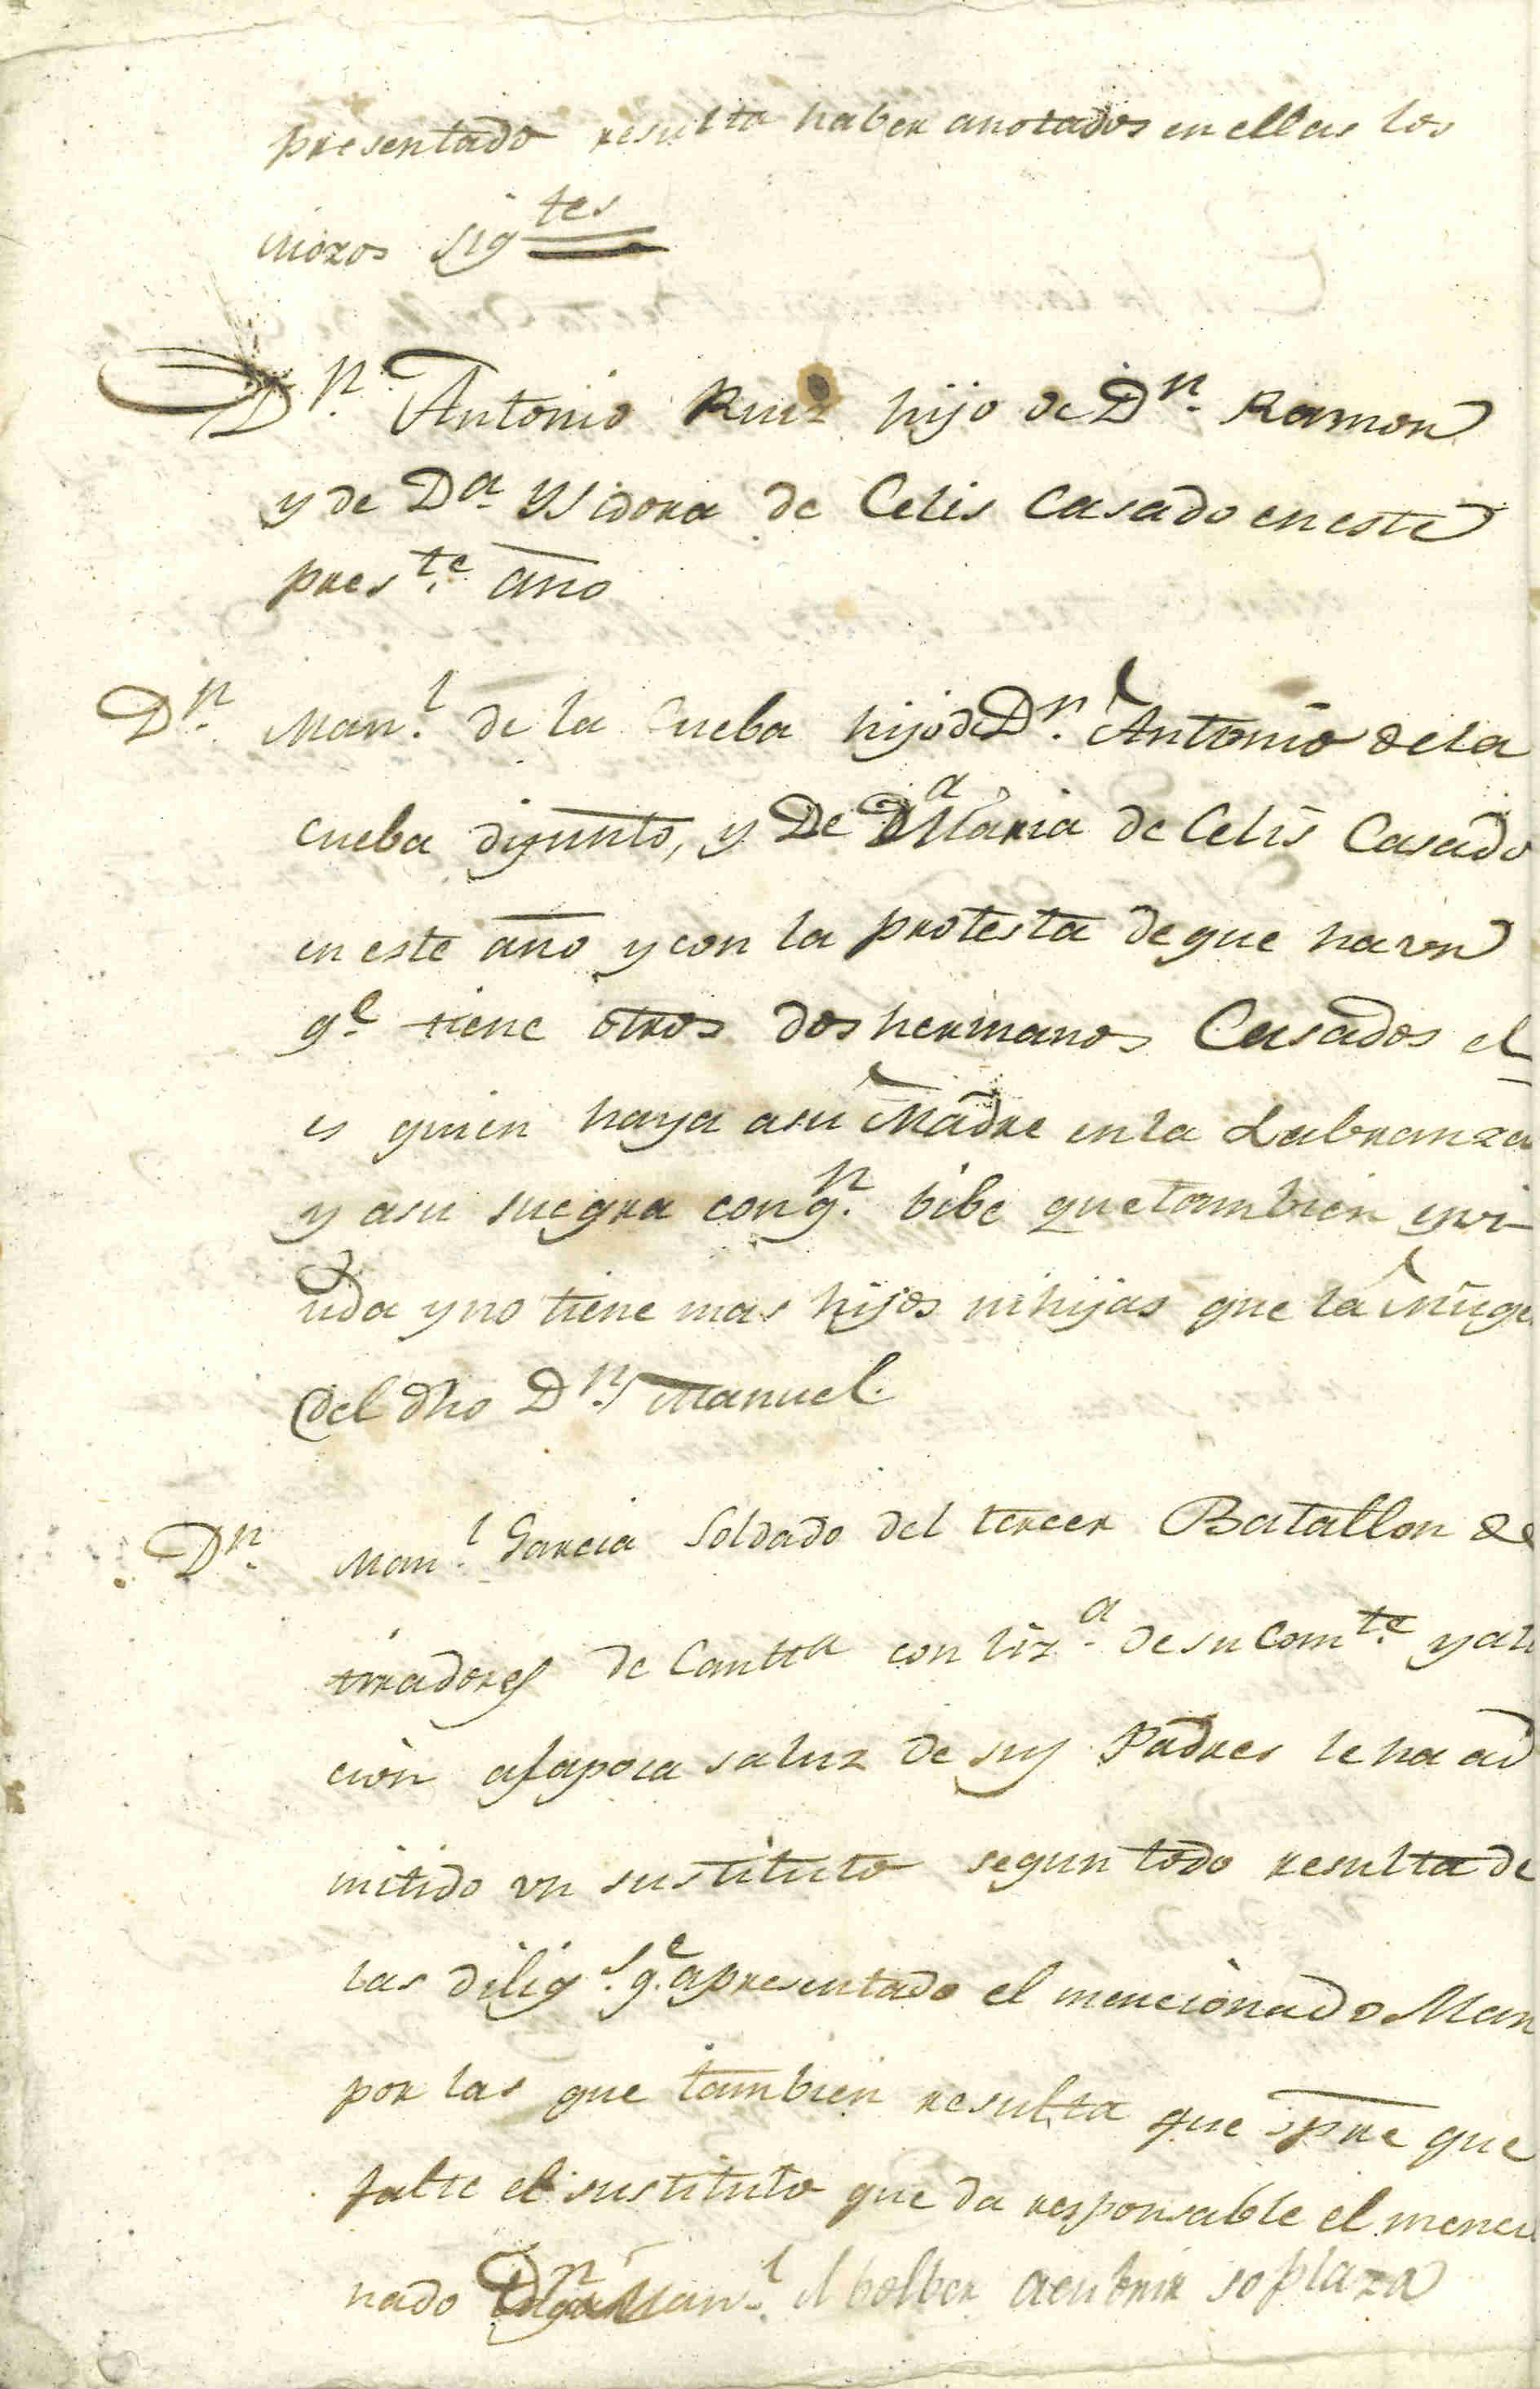 presentado resulta haber anotados en ellas los
mozos sigtes
Dn. Antonio Ruiz hijo de Dn. Ramon
y de Da. Ysidora de Celis Casado en este
preste. año
Dn. Manl. de la Cueba hijo de Dn. Antonio de la
Cueba difunto, y De Da Maria de Celis Casado
en este año y con la protesta de que haun
qe tiene otros dos hermanos Casados el
es quien haya a su Madre en la Labranza
y a su suegra con qn. bibe que tambien es vi-
uda y no tiene mas hijos ni hijas que la Muge
del dho Dn. Manuel.
Dn. Manl. Garcia Soldado del tercer Batallon de
tiradores de Cantta con liza. de su Comte. y aten
cion a la poca saluz de sus Padres le ha ad
mitido un sustituto segun todo resulta de
las diligs. qe. a presentado el mencionado Man
por las que tambien resulta que spre que
falte el sustituto queda responsable el mencio
nado Dn Manl. el bolber a cubrir so plaza